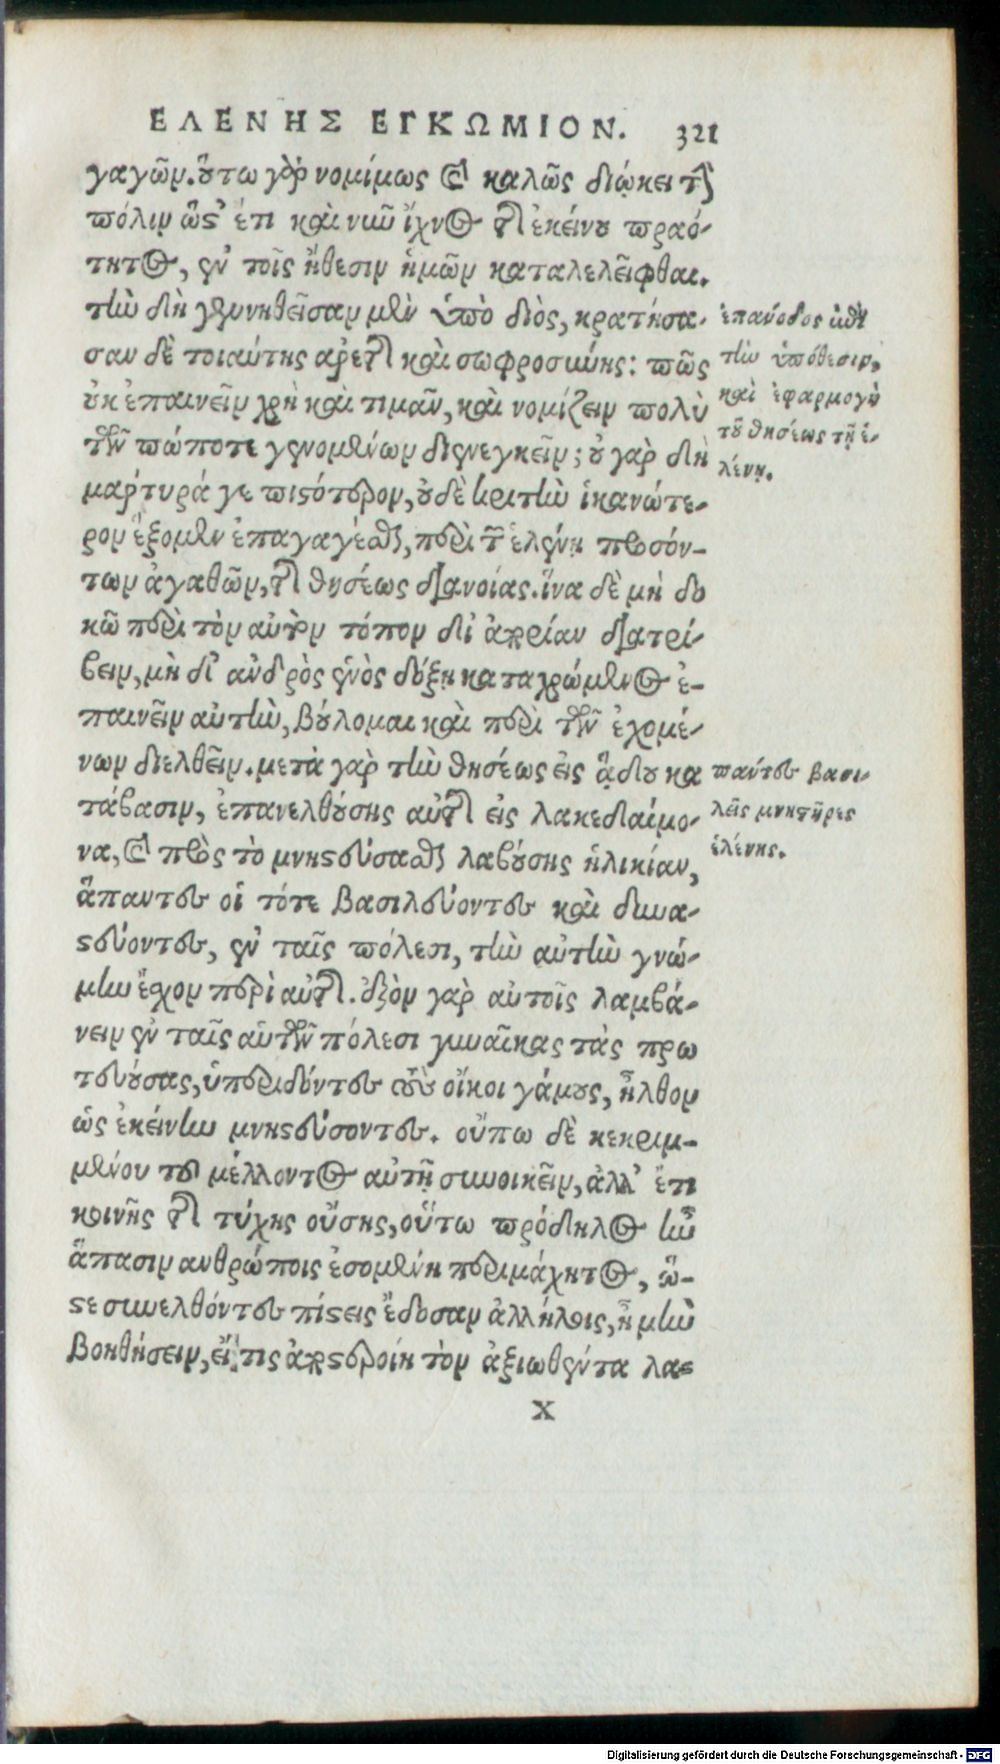 ΕΛΕΝΗΣ ΕΓΚΩΜΙΟΝ. 321
γαγῶν. οὕτω γὰρ νομίμως καὶ καλῶς διῴκει τὴν
πόλιν ὥστ' ἔτι καὶ νῦν ἴχνος τῆς ἐκείνου πραό-
τητος, ἐν τοῖς ἤθεσιν ἡμῶν καταλελεῖφθαι.
τὴν δὴ γεννηθεῖσαν μὲν ὑπὸ διὸς, κρατήσα-
σαν δὲ τοιαύτης ἀρετῆς καὶ σωφροσύνης: πῶς
οὐκ ἐπαινεῖν χρὴ καὶ τιμᾶν, καὶ νομίζειν πολὺ
τῶν πώποτε γενομένων διενεγκεῖν; οὐ γὰρ δὴ
μάρτυρά γε πιστότερον, οὐδὲ κριτὴν ἱκανώτε-
ρον ἕξομεν ἐπαγαγέσθαι, περὶ τῶν ἑλένῃ προσόν-
των ἀγαθῶν, τῆς θησέως διανοίας. ἵνα δὲ μὴ δο
κῶ περὶ τὸν αὐτὸν τόπον δι' ἀπορίαν διατρί-
βειν, μὴ δι' ἀνδρὸς ἑνὸς δόξῃ καταχρώμενος ἐ-
παινεῖν αὐτὴν, βούλομαι καὶ περὶ τῶν ἐχομέ-
νων διελθεῖν. μετὰ γὰρ τὴν θησέως εἰς ᾅδου κα
τάβασιν, ἐπανελθούσης αὐτῆς εἰς λακεδαίμο-
να, καὶ πρὸς τὸ μνηστεύσασθαι λαβούσης ἡλικίαν,
ἅπαντες οἱ τότε βασιλεύοντες καὶ δυνα-
στεύοντες, ἐν ταῖς πόλεσι, τὴν αὐτὴν γνώ-
μην ἔσχον περὶ αὐτῆς. ἐξὸν γὰρ αὐτοῖς λαμβά-
νειν ἐν ταῖς αὑτῶν πόλεσι γυναῖκας τὰς πρω
τευούσας, ὑπεριδόντες τοὺς οἴκοι γάμους, ἦλθον
ὡς ἐκείνην μνηστεύσοντες. οὔπω δὲ κεκριμ-
μένου τοῦ μέλλοντος αὐτῇ συνοικεῖν, ἀλλ' ἔτι
κοινῆς τῆς τύχης οὔσης, οὕτω πρόδηλος ἦν
ἅπασιν ἀνθρώποις ἐσομένη περιμάχητος, ὥ-
στε συνελθόντες πίστεις ἔδοσαν ἀλλήλοις, ἦ μὴν
βοηθήσειν, εἴ τις ἀποστεροίη τὸν ἀξιωθέντα λα-
X
ἐπάνοδος ἐπὶ
τὴν ὑπόθεσιν,
καὶ ἐφαρμογὴ
τοῦ θησέως τῇ ἑ-
λένῃ.
πάντες βασι-
λεῖς μνηστῆρες
ἑλένης.
Digitalisierung gefördert durch die Deutsche Forschungsgemeinschaft - DFG